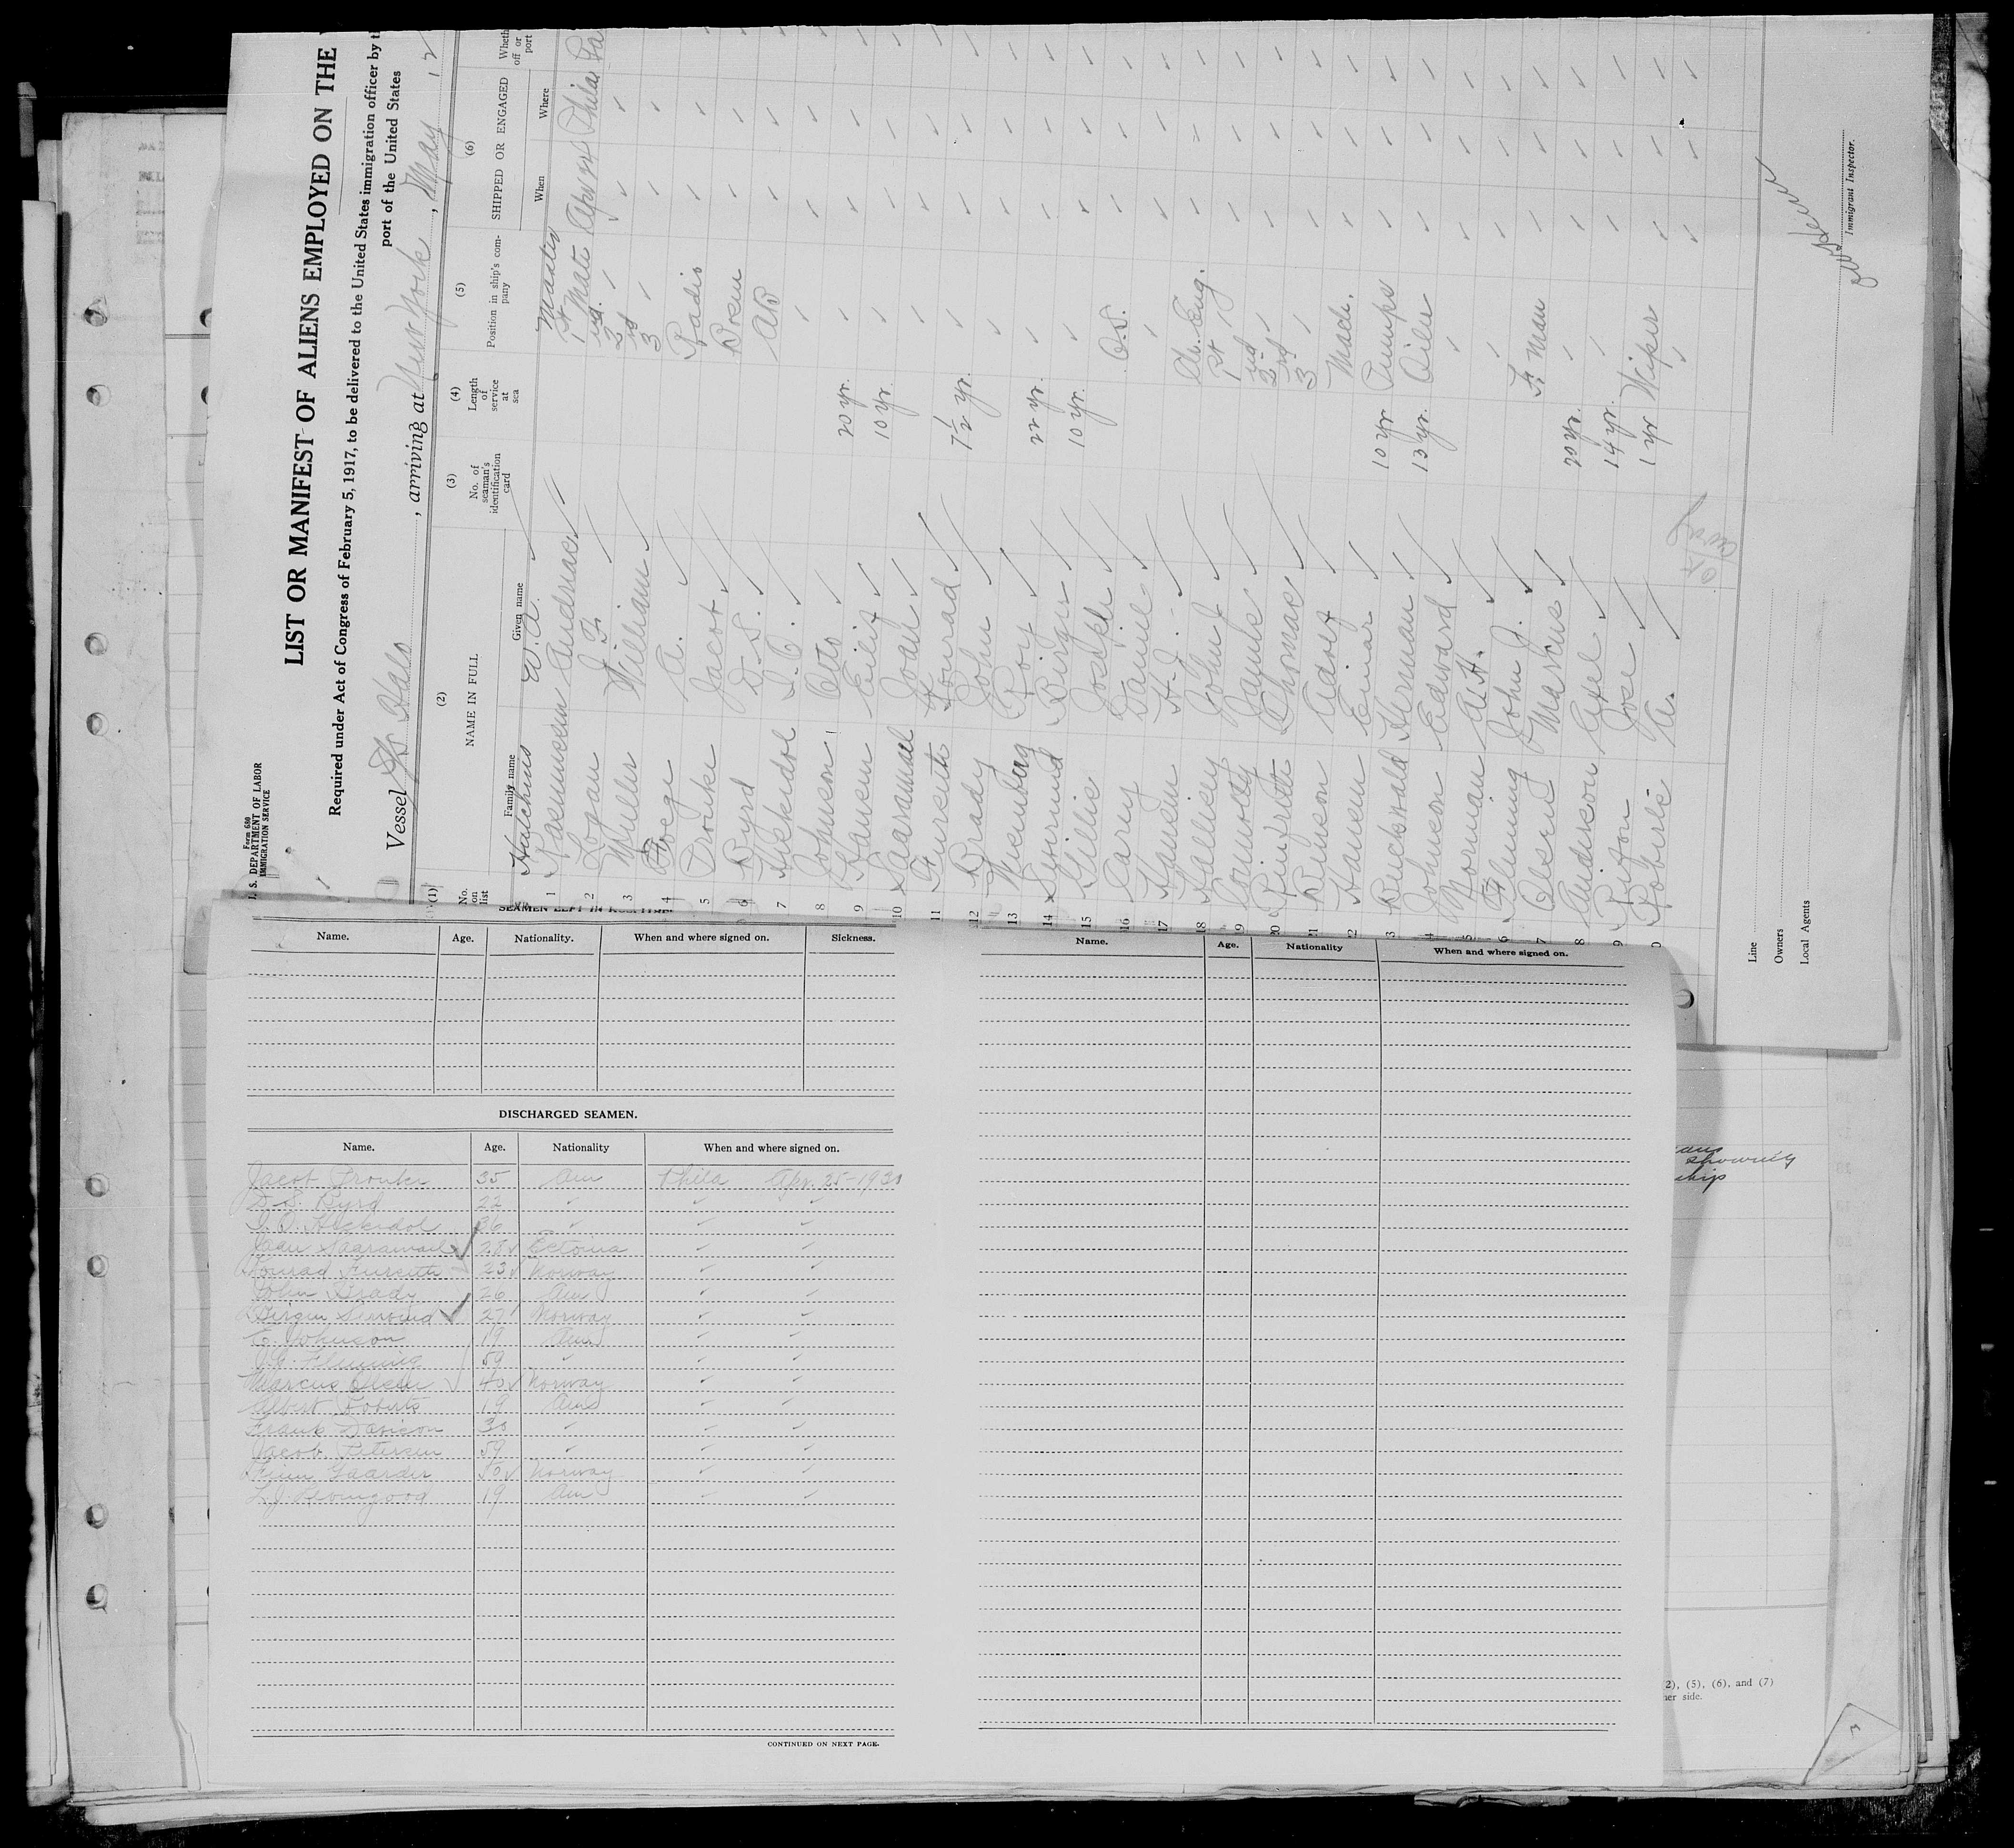 Form 680
U. S. DEPARTMENT OF LABOR
IMMIGRATION SERVICE
LIST OR MANIFEST OF ALIENS EMPLOYED ON THE
Required under Act of Congress of February 5, 1917, to be delivered to the United States immigration officer by th
port of the United States
Vessel SS Halo, arriving at New York, May 12
(1) (2) (3) (4) (5) (6)
No. on list NAME IN FULL No. of seaman's identification card Length of service at sea Position in ship's company SHIPPED OR ENGAGED Wheth off or port
Family name Given name When Where
Hutchins W. A. Master
1 Rasmussen Andreas 1st Mate Apr 22 Phila Pa
2 Logan J. F. 2nd ✓ ✓ ✓
3 Muller William 3rd ✓ ✓ ✓
4 Foege A. Radio ✓ ✓
5 Jacob Bosun ✓ ✓
6 Byrd D. S. AB ✓ ✓
7 Heckedol I. O. ✓ ✓ ✓
8 Johnson Otto 20 yr. ✓ ✓ ✓
9 Hansen Eilif 10 yr. ✓ ✓ ✓
10 Saaramael Joan ✓ ✓ ✓
11 Furseth Konrad 7½ yr. ✓ ✓ ✓
12 Brady John ✓ ✓ ✓
13 Wisenburg Roy 22 yr. ✓ ✓ ✓
14 Birger 10 yr. ✓ ✓ ✓
15 Gillis Joseph O.S. ✓ ✓
16 Carey Daniel ✓ ✓ ✓
17 Hansen H. J. Ch. Eng. ✓ ✓
18 Hallisey John J. 1st ✓ ✓ ✓
19 Connolly James 2nd ✓ ✓ ✓
20 Thomas 3rd ✓ ✓ ✓
21 Benson Adolf Mach. ✓ ✓
22 Hansen Einar 10 yr Pumps ✓ ✓
3 Buckwald Herman 13 yr. Oiler ✓ ✓
4 Johnson Edward ✓ ✓ ✓
5 Norman A. H. ✓ ✓ ✓
6 Fleming John J. F. Man ✓ ✓
7 Olsen Markus 20 yr. ✓ ✓ ✓
8 Anderson Axel 14 yr. ✓ ✓ ✓
9 Jose 1 yr Wiper ✓ ✓
0 Roberts A. ✓ ✓ ✓
Line
Owners
Local Agents
Immigrant Inspector.
Name. Age. Nationality. When and where signed on. Sickness.
Name. Age. Nationality When and where signed on.
DISCHARGED SEAMEN.
Name. Age. Nationality When and where signed on.
Jacob 35 Am Phila Apr. 25-1930
D. S. Byrd 22 ✓ ✓ ✓
I. O. Heckedol 26 ✓ ✓ ✓
Joan Saaramael 28 Estonia ✓ ✓
Konrad Furseth 23 Norway ✓ ✓
John Brady 26 Am ✓ ✓
Birger 27 Norway ✓ ✓
E. Johnson 19 Am ✓ ✓
J. J. Fleming 59 ✓ ✓ ✓
Marcus Olsen 40 Norway ✓ ✓
Albert Roberts 19 Am ✓ ✓
Frank 30 ✓ ✓ ✓
Jacob Petersen 59 ✓ ✓ ✓
Finn Gaarder 50 Norway ✓ ✓
L. J. Livingood 19 Am ✓ ✓
CONTINUED ON NEXT PAGE.
showing
ship
2), (5), (6), and (7)
her side.
3